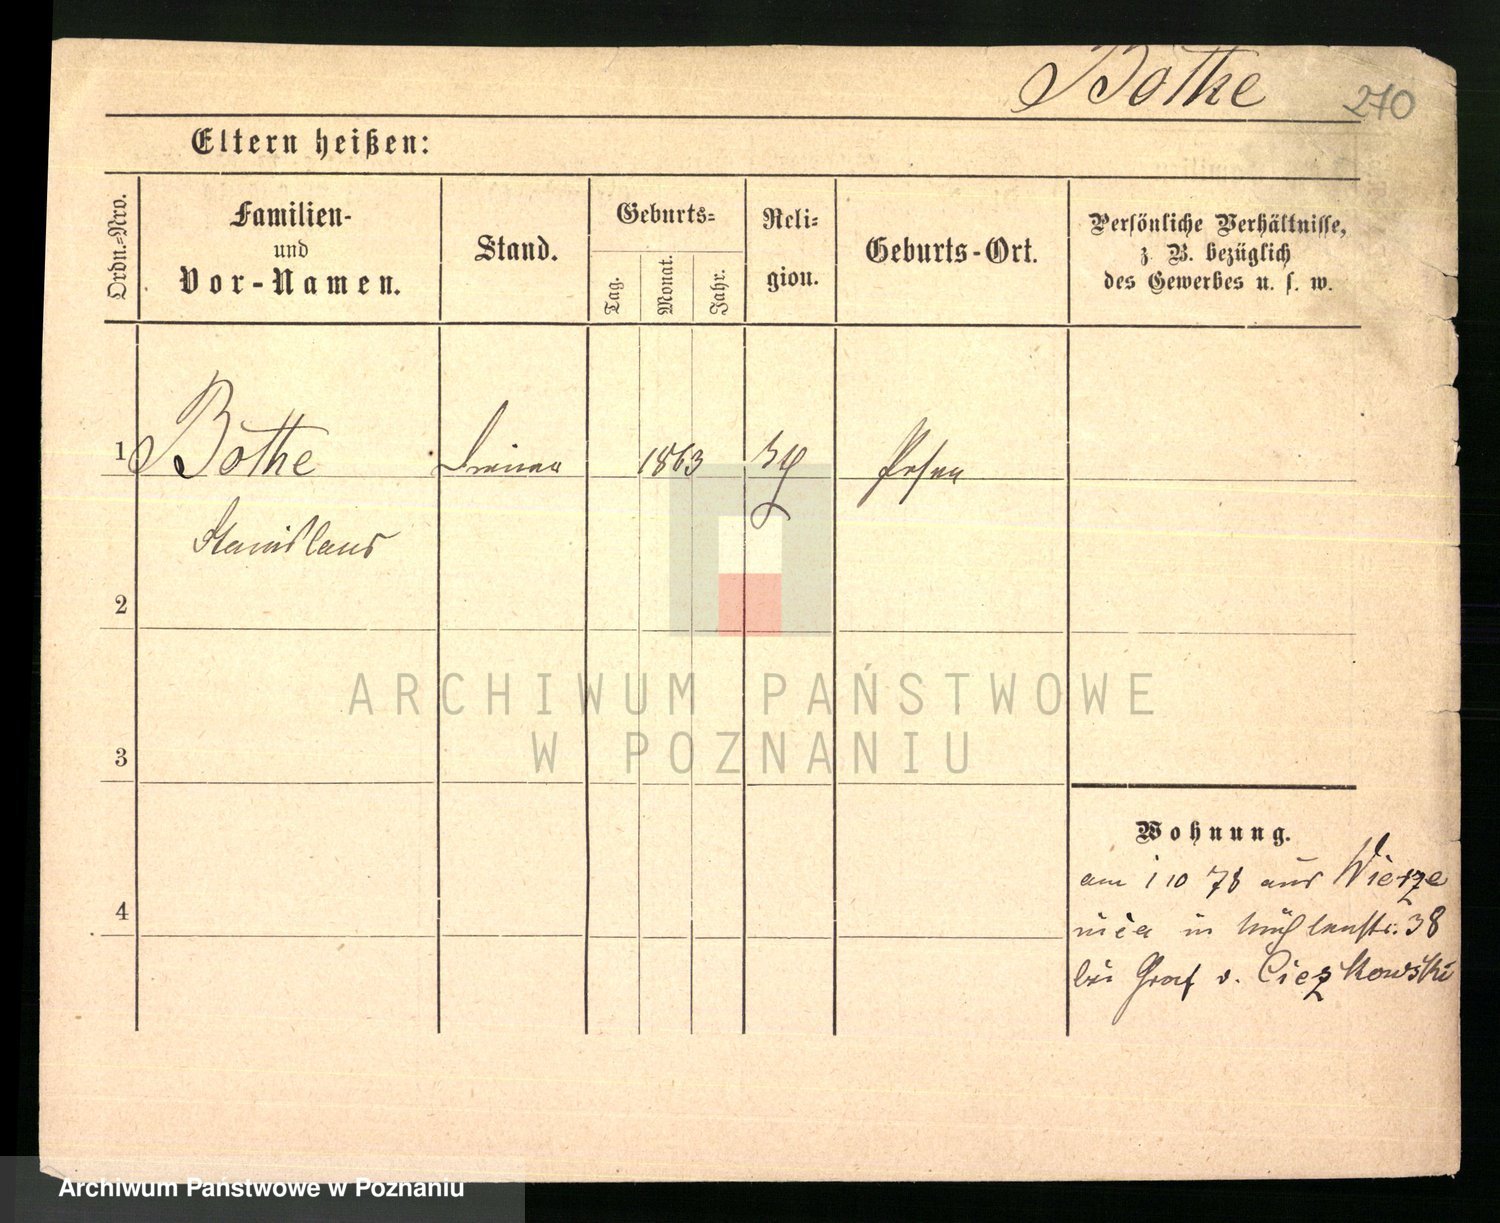 Bothe
270
Eltern heißen:
Ordn.=Nro.
Familien-
und
Vor-Namen.
Stand.
Geburts=
Tag.
Monat.
Jahr.
Reli-
gion.
Geburts-Ort.
Persönliche Verhältnisse,
z. B. bezüglich
des Gewerbes u. s. w.
1 Bothe Diener 1863 Posen
Stanislaus
2
3
4
Wohnung.
am 1 10 78 aus Wierze
nica in Mühlenstr. 38
bei Graf v. Cieszkowski
ARCHIWUM PAŃSTWOWE
W POZNANIU
Archiwum Państwowe w Poznaniu